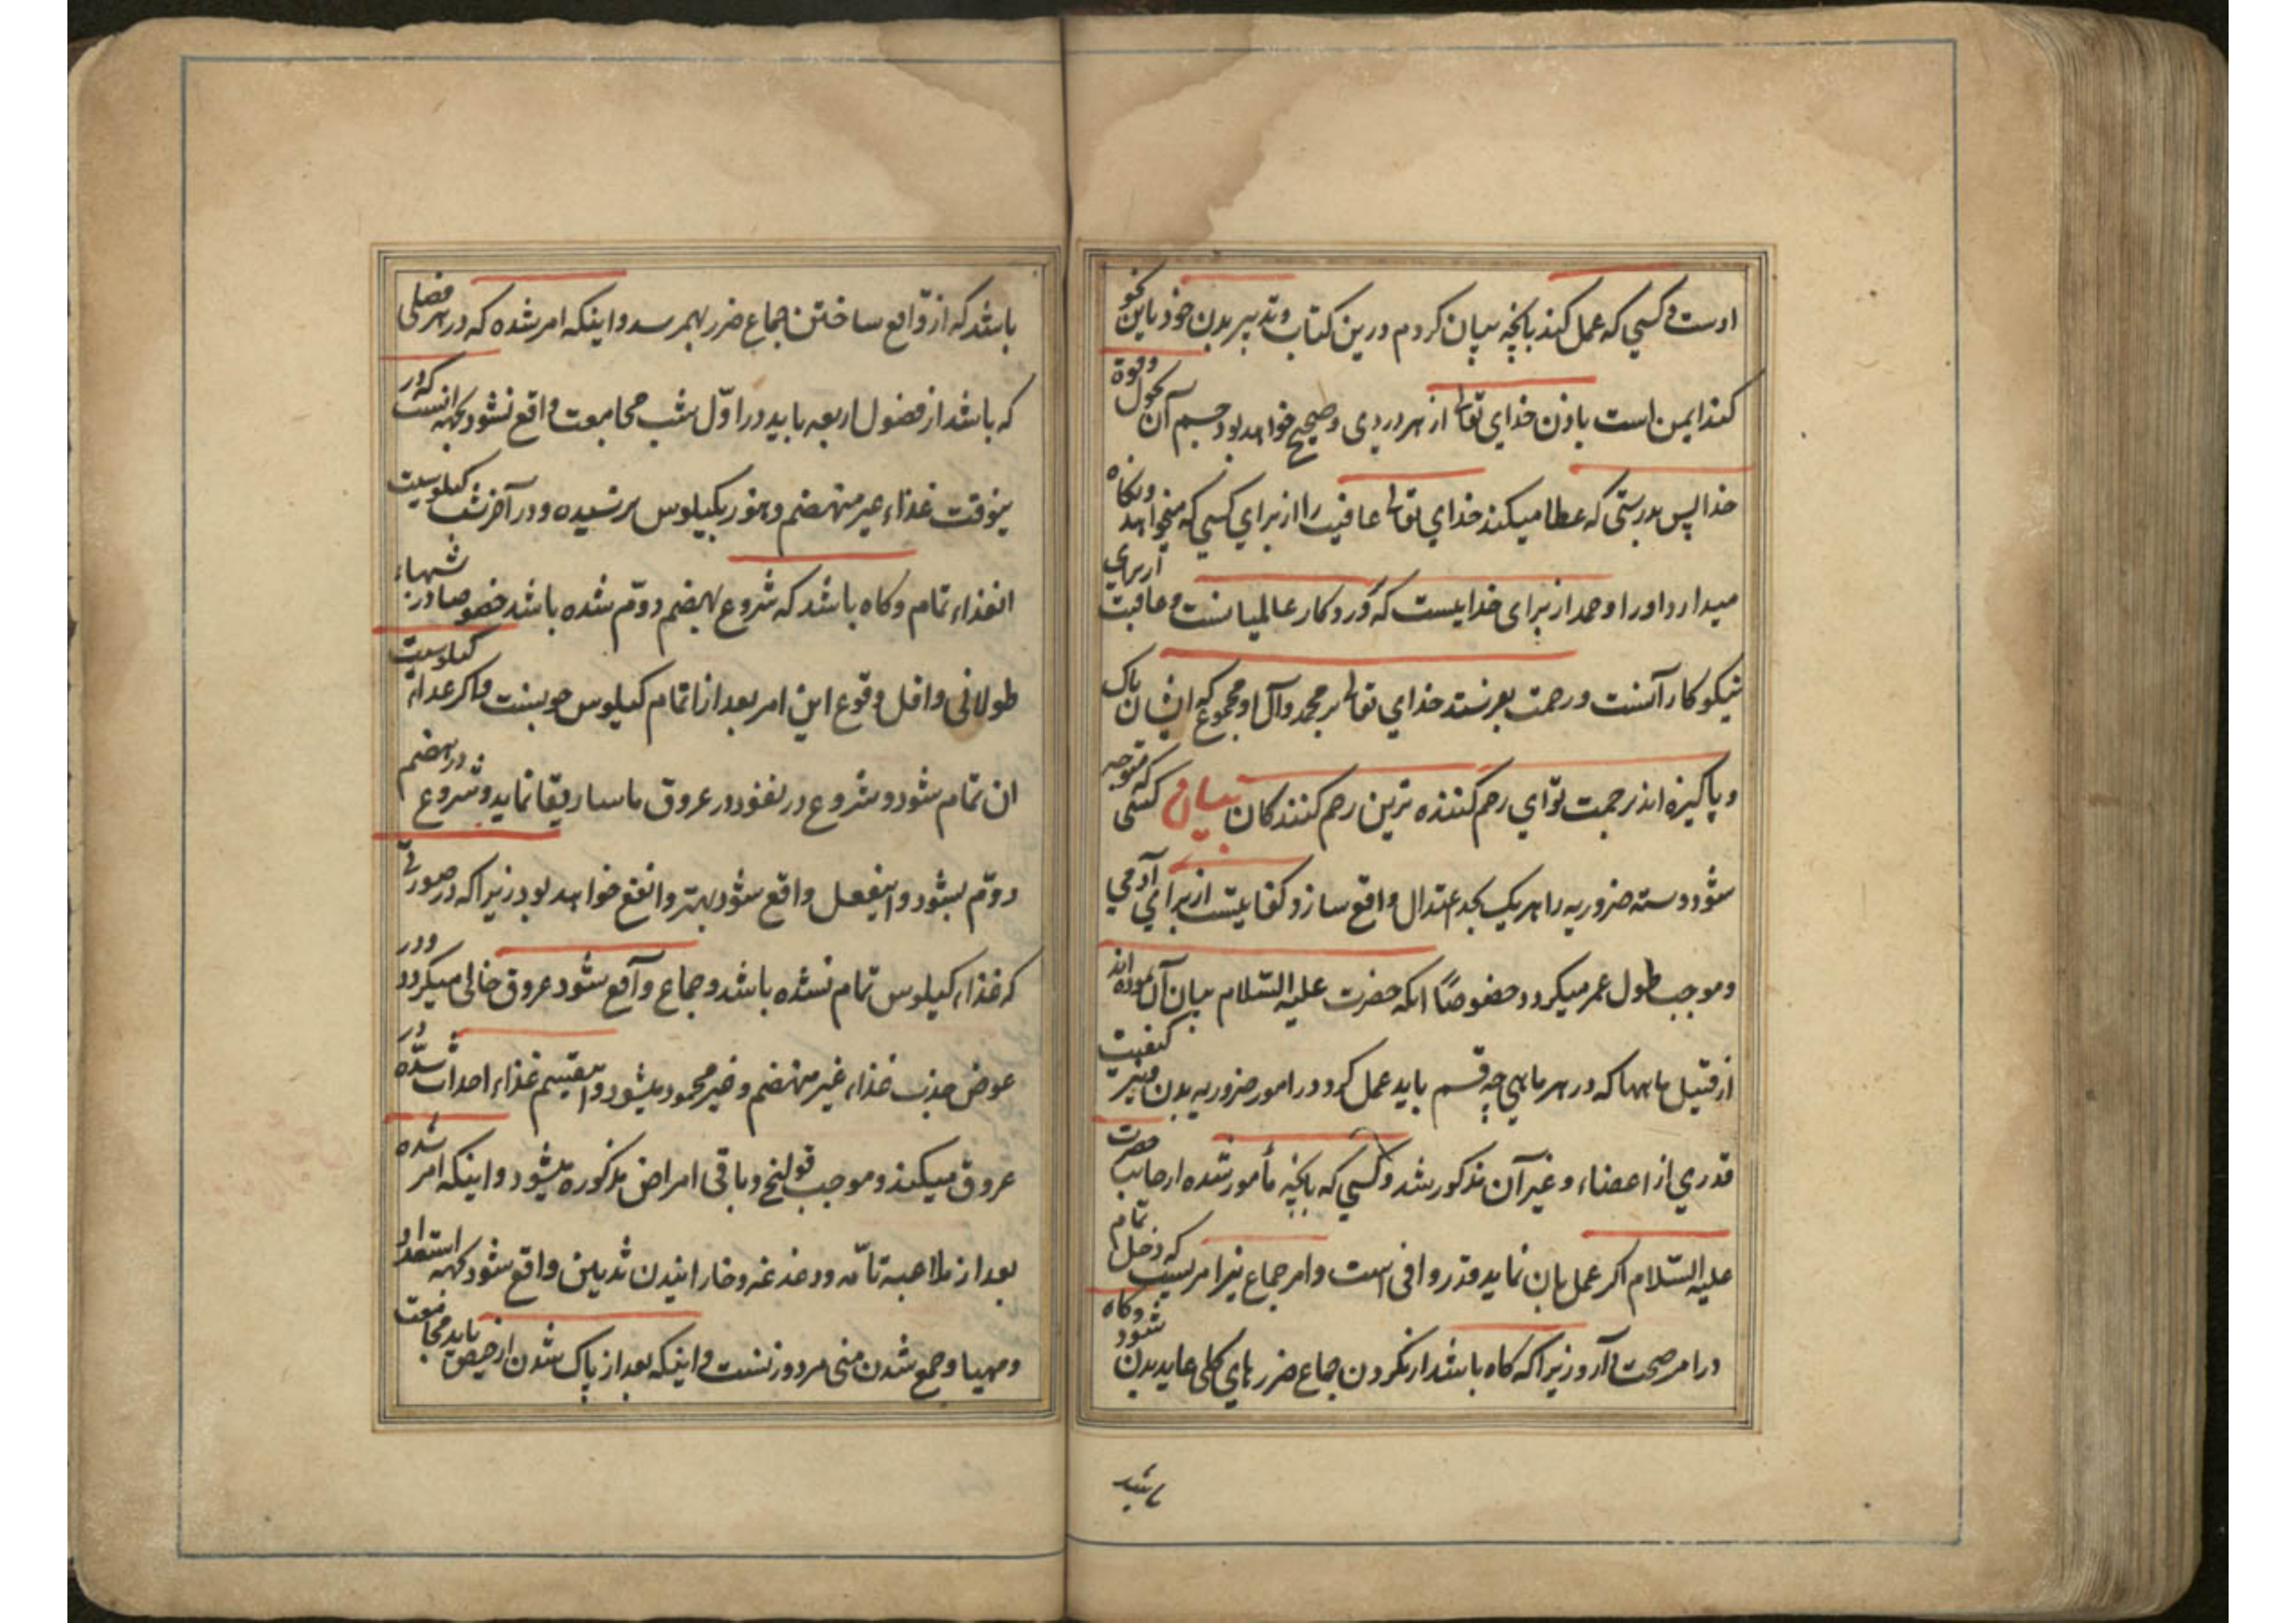 اوست و کسی که عمل کند بانچه بیان کردم درین کتاب و تدبیر بدن خود باین نحو
کند ایمن است باذن خدای تعالی از هر دردی و صحیح خواهد بود جسم آن بحول و قوة
خدا پس بدرستی که عطا میکند خدای تعالی عافیت را از برای کسی که میخواهد و نکاه
میدارد او را و حمد از برای خدایست که پروردکار عالمیانست و عاقبت از برای
نیکوکارانست و رحمت بفرستد خدای تعالی بر محمد و آل او مجموع که ایشان پاک
و پاکیزه اند برحمت تو ای رحم کننده ترین رحم کنندکان بیان کسی که متوجه
شود و سته ضروریه را هر یک بحد اعتدال واقع سازد کفایتست از برای آدمی
و موجب طول عمر میکردد خصوصًا انکه حضرت علیه السّلام بیان آن نموده اند
از قبیل ماهها که در هر ماهی چه قسم باید عمل کرد و در امور ضروریه بدن و نیز کیفیت
قدری از اعضاء و غیر آن مذکور شد و کسی که بانچه مأمور شده از جانب حضرت
علیه السّلام اکر عمل بان نماید قدر وافی است و امر جماع نیز امریست که دخل تمام
در امر صحت دارد زیرا که کاه باشد از نکردن جماع ضررهای کلی عاید بدن شود و کاه
باشد
باشد که از واقع ساختن جماع ضرر بهمرسد و اینکه امر شده که در هر فصلی
که باشد از فصول اربعه باید در اوّل شب مجامعت واقع نشود بجهة انست که در
ینوقت غذاء غیر منهضم و هنوز بکیلوس نرسیده و در آخر شب کیلوسیت
انغذاء تمام و کاه باشد که شروع بهضم دوّم شده باشد خصوصا در شبهاء
طولانی و اقل وقوع این امر بعد از اتمام کیلوس خوبست و اکر غذاء کیلوسیت
ان تمام شود و شروع در نفوذ در عروق ماساریقا نماید و شروع در هضم
دوّم بشود و اینفعل واقع شود بهتر و انفع خواهد بود زیرا که در صورتی
که غذاء کیلوس تمام نشده باشد و جماع واقع شود عروق خالی میکردد و در
عوض جذب غذاء غیر منهضم و غیر محمود میشود و اینقسم غذاء احداث سدّه در
عروق میکند و موجب قولنج و باقی امراض مذکوره میشود و اینکه امر شده
بعد از ملاعبه تامّه و دغدغه و خارانیدن ثدیین واقع شود بجهة استعداد
و مهیا و جمع شدن منی مرد و زنست و اینکه بعد از پاک شدن از حیض باید مجامعت